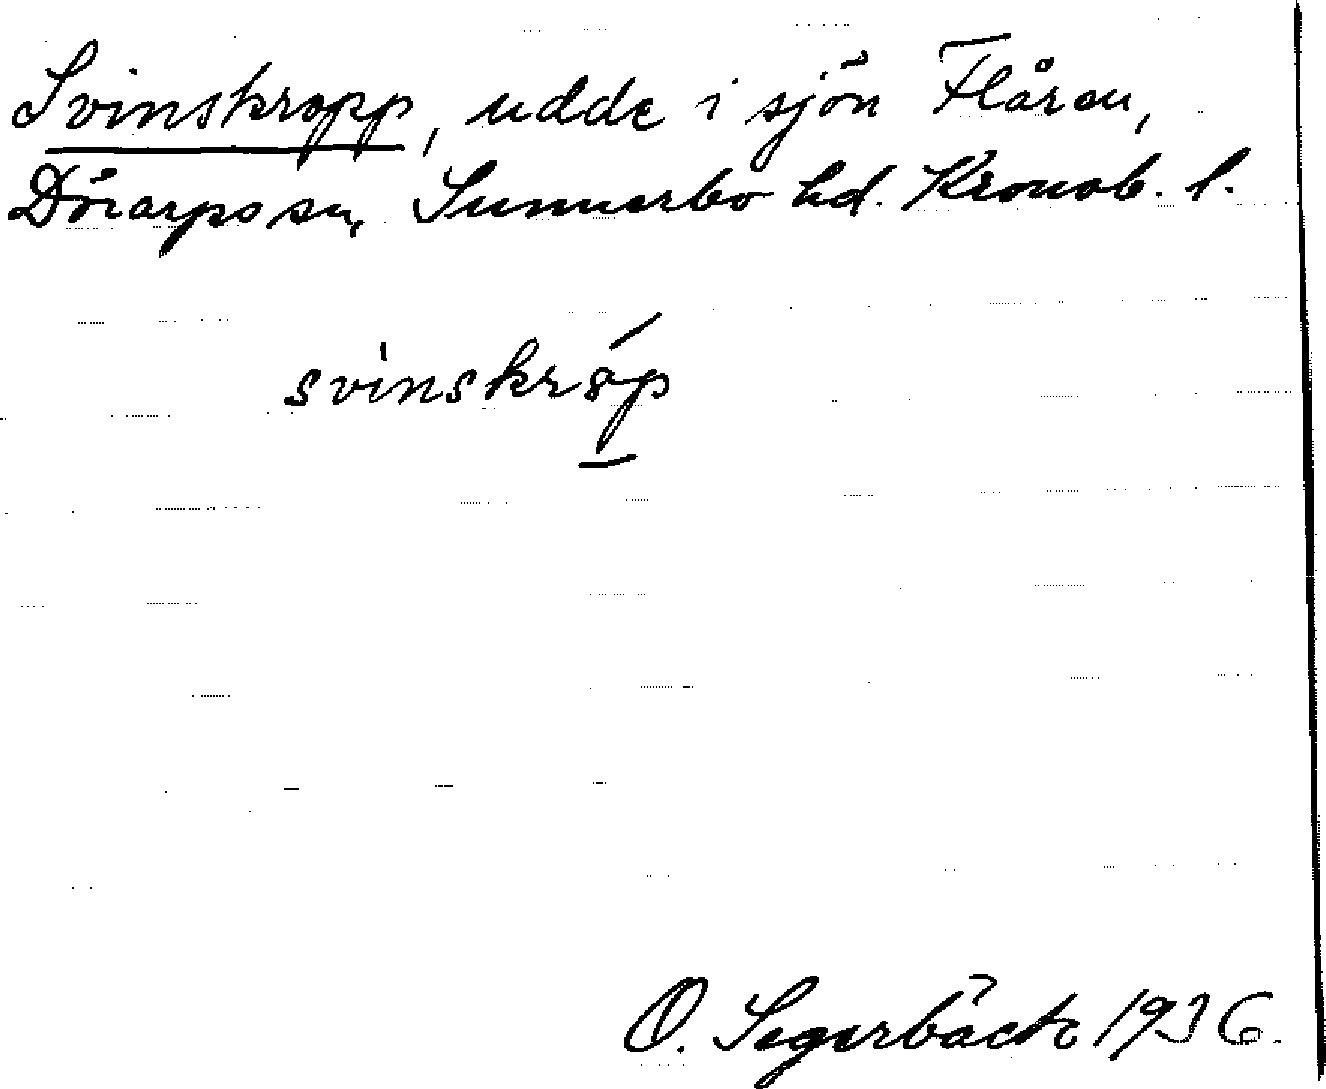 Svinskropp, udde i sjön Flåren,
Dörarps sn, Sunnerbo hd. Kronob. l.
svinskrop
O. Segerbäck 1936.